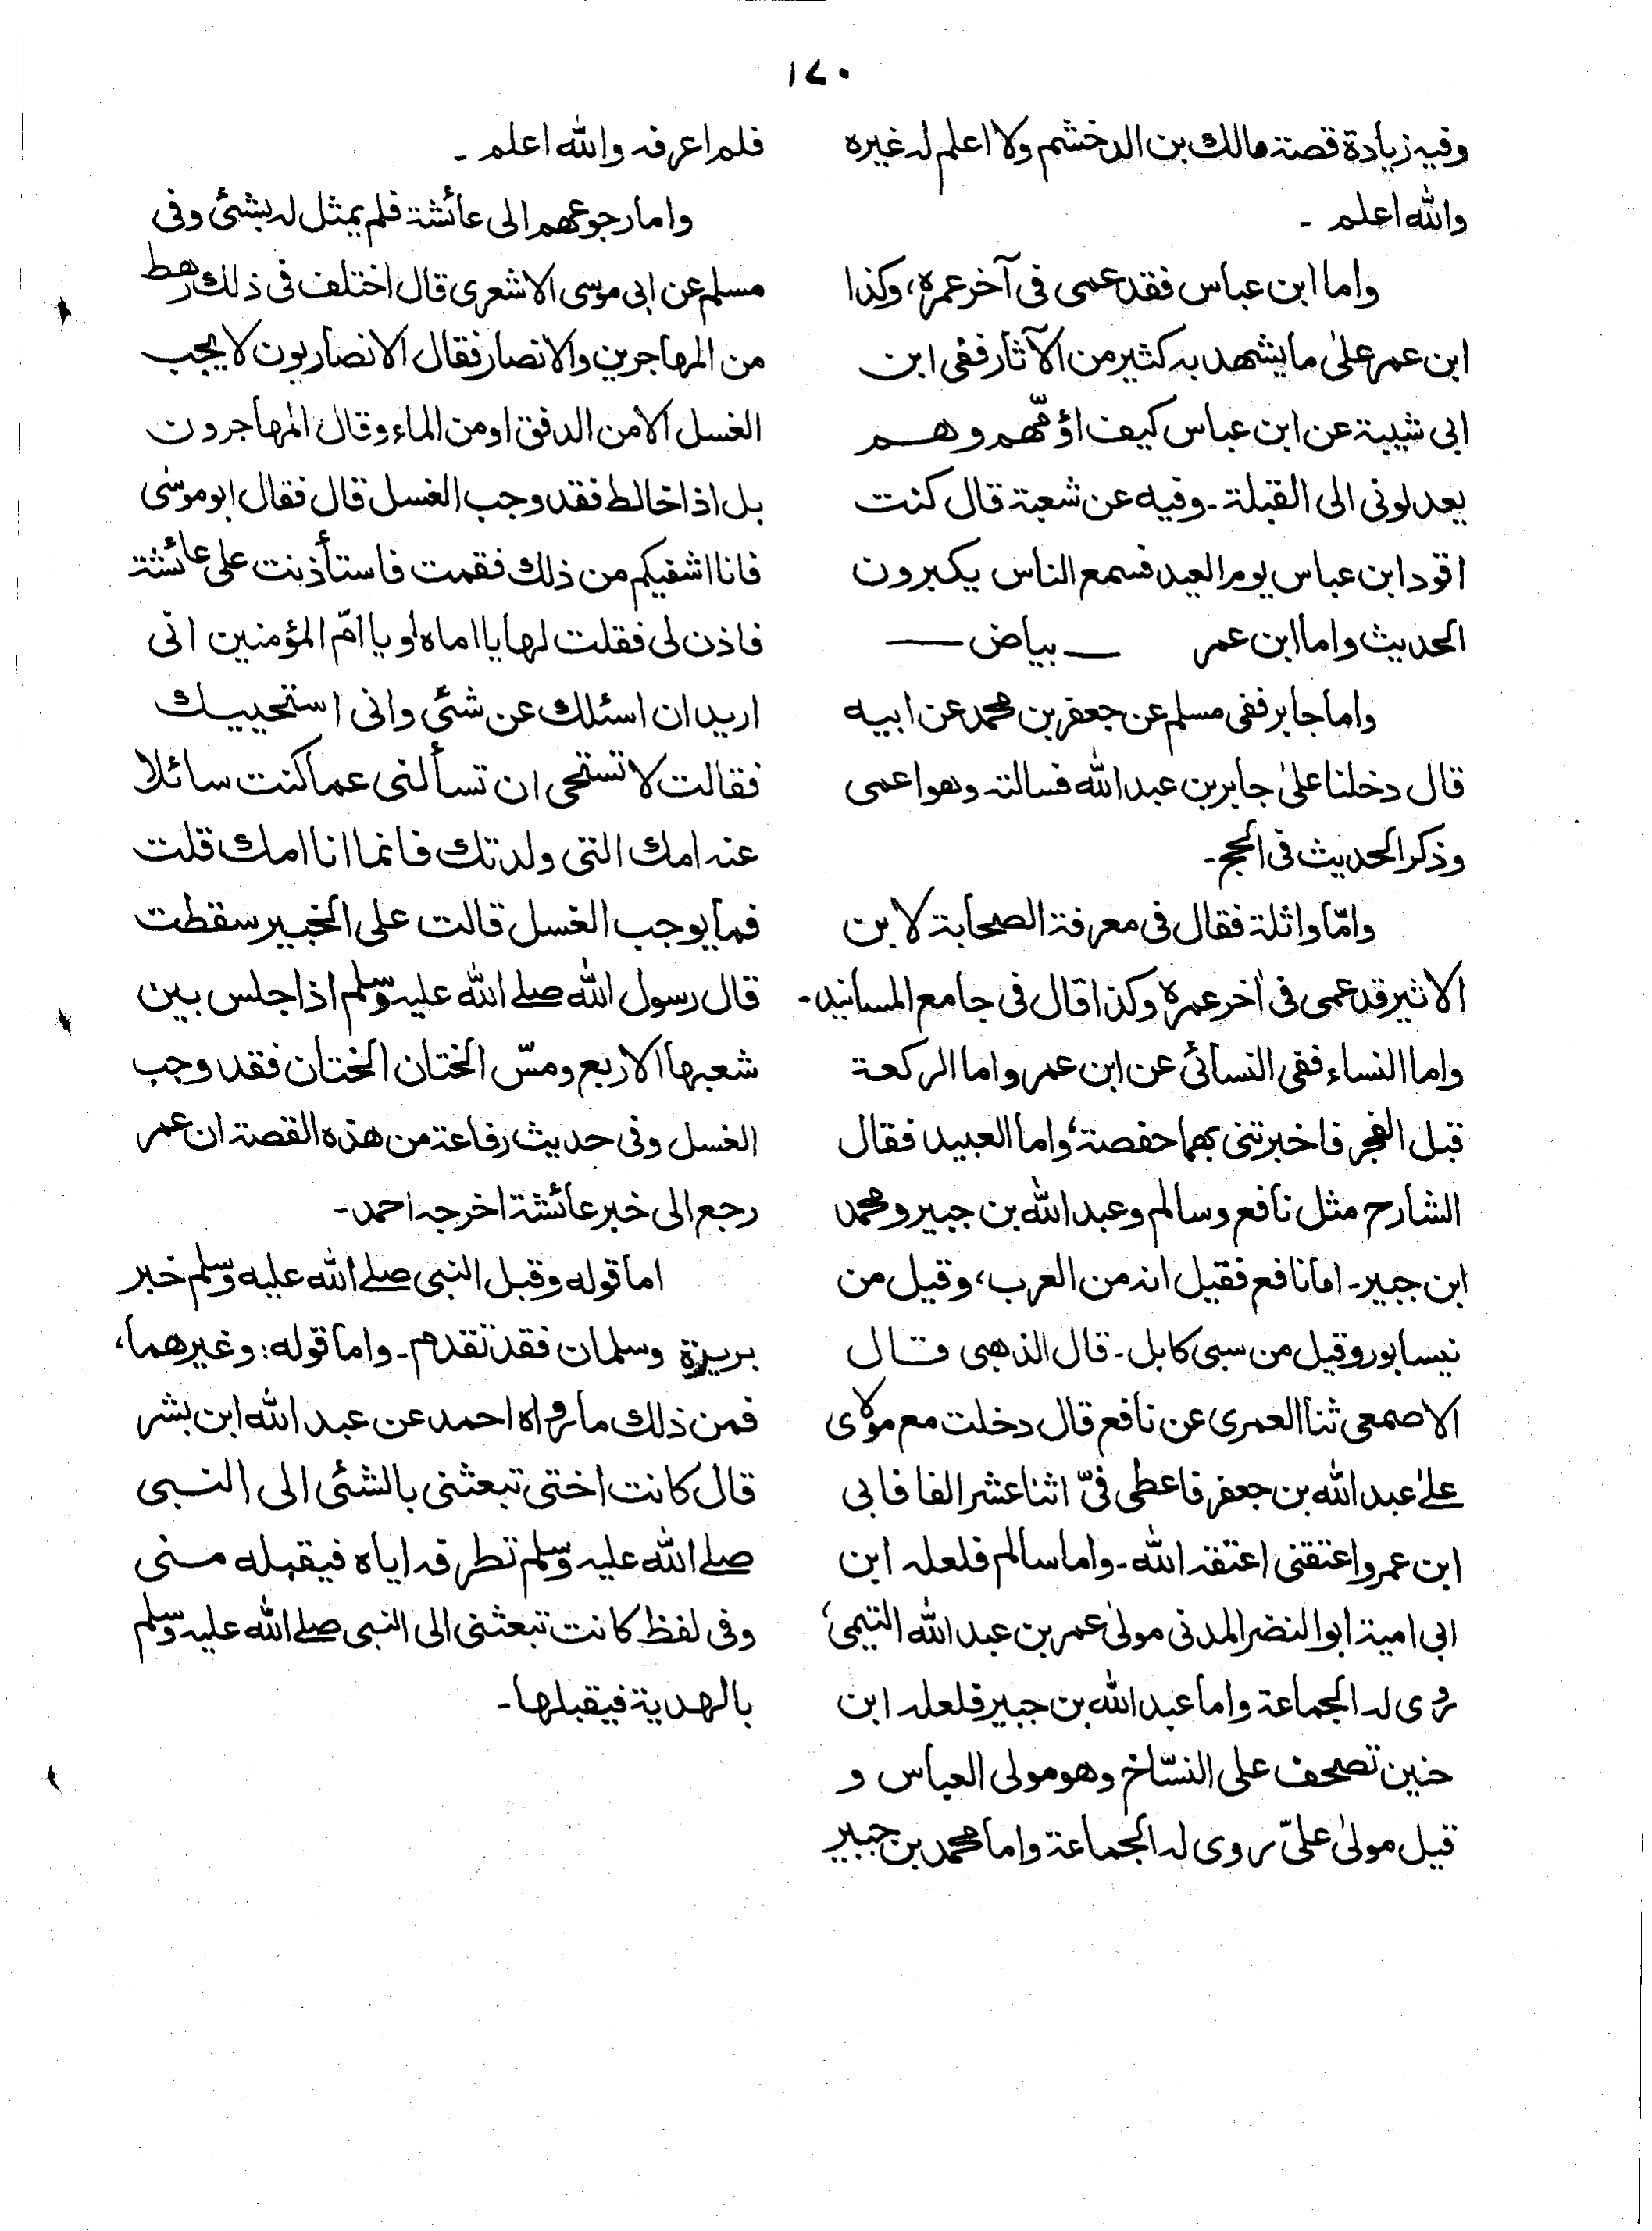 ١٧٠
وفيه زيادة قصة مالك بن الدخشم ولا اعلم له غيره
والله اعلم ۔
واما ابن عباس فقد عمى فى آخر عمره، وكذا
ابن عمر علىٰ ما يشهد به كثير من الآثار ففى ابن
ابى شيبة عن ابن عباس كيف اؤمّهم وهم
يعدلونى الى القبلة ۔ وفيه عن شعبة قال كنت
اقود ابن عباس يوم العيد فسمع الناس يكبرون
الحديث واما ابن عمر ــ بياض ــ
واما جابر ففى مسلم عن جعفر بن محمد عن ابيه
قال دخلنا علىٰ جابر بن عبد الله فسالته وهو اعمى
وذكر الحديث فى الحج ۔
وامّا واثلة فقال فى معرفة الصحابة لابن
الاثير قد عمى فى اٰخر عمره وكذا قال فى جامع المسانيد ۔
واما النساء ففى النسائى عن ابن عمر واما الركعة
قبل الفجر فاخبرتنى بهما حفصة، واما العبيد فقال
الشارح مثل نافع وسالم وعبد الله بن جبير ومحمد
ابن جبير ۔ اما نافع فقيل انه من العرب، وقيل من
نيسابور وقيل من سبى كابل ۔ قال الذهبى قال
الاصمعى ثنا العمرى عن نافع قال دخلت مع مولاى
علىٰ عبد الله بن جعفر فاعطى فىّ اثنا عشر الفا فابى
ابن عمر واعتقنى اعتقه الله ۔ واما سالم فلعله ابن
ابى امية ابو النضر المدنى مولىٰ عمر بن عبد الله التيمى،
روى له الجماعة واما عبد الله بن جبير فلعله ابن
حنين تصحف على النسّاخ وهو مولى العباس و
قيل مولىٰ علىّ روى له الجماعة واما محمد بن جبير
فلم اعرفه والله اعلم ۔
واما رجوعهم الى عائشة فلم يمثل له بشئ وفى
مسلم عن ابى موسى الاشعرى قال اختلف فى ذلك رهط
من المهاجرين والانصار فقال الانصاريون لا يجب
الغسل الا من الدفق او من الماء وقال المهاجرون
بل اذا خالط فقد وجب الغسل قال فقال ابو موسٰى
فانا اشفيكم من ذلك فقمت فاستأذنت على عائشة
فاذن لى فقلت لها يا اماه او يا امّ المؤمنين انى
اريد ان اسئلك عن شئ وانى استحييك
فقالت لا تستحى ان تسألنى عما كنت سائلا
عنه امك التى ولدتك فانما انا امك قلت
فما يوجب الغسل قالت على الخبير سقطت
قال رسول الله صلے الله عليه وسلم اذا جلس بين
شعبها الاربع ومسّ الختان الختان فقد وجب
الغسل وفى حديث رفاعة من هذه القصة ان عمر
رجع الى خبر عائشة اخرجه احمد ۔
اما قوله وقبل النبى صلے الله عليه وسلم خبر
بريرة وسلمان فقد تقدم ۔ واما قوله: وغيرهما،
فمن ذلك ما رواه احمد عن عبد الله ابن بشر
قال كانت اختى تبعثنى بالشئى الى النبى
صلے الله عليه وسلم تطرفه اياه فيقبله منى
وفى لفظ كانت تبعثنى الى النبى صلے الله عليه وسلم
بالهدية فيقبلها ۔